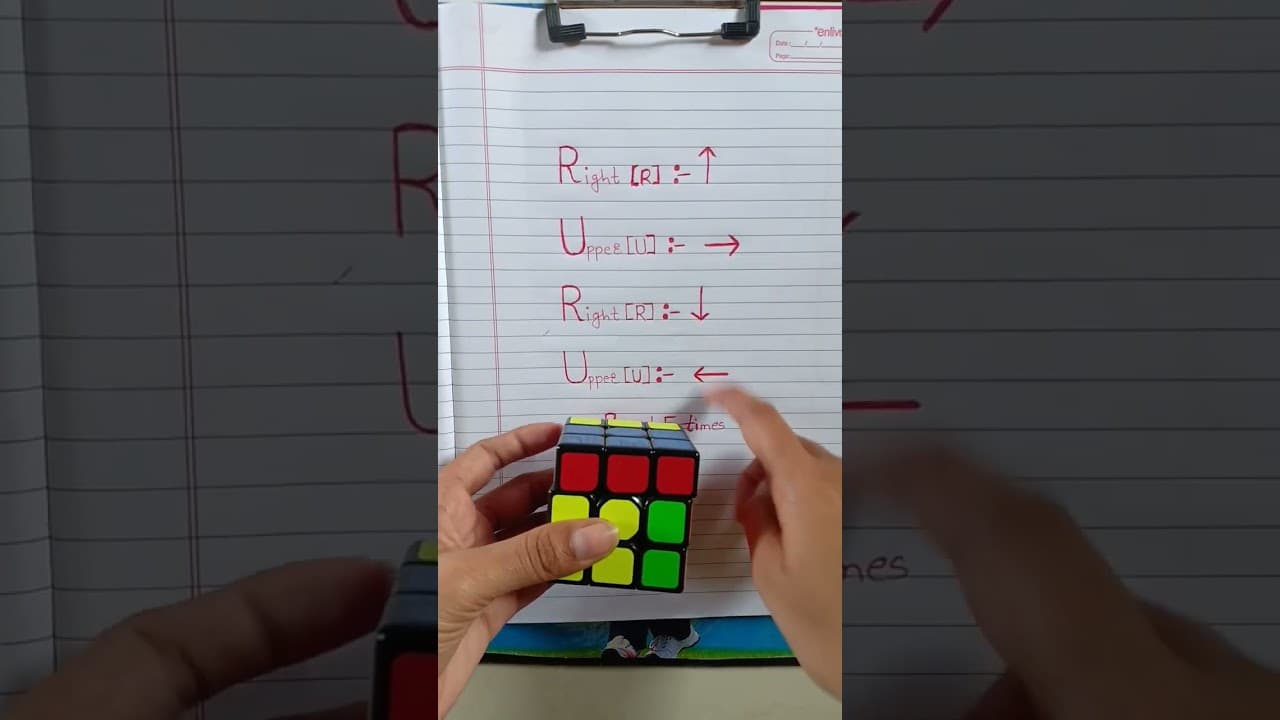 enliv
Date: / /
Page:
Right [R] :- ↑
Upper [U] :- →
Right [R] :- ↓
Upper [U] :- ←
5 times